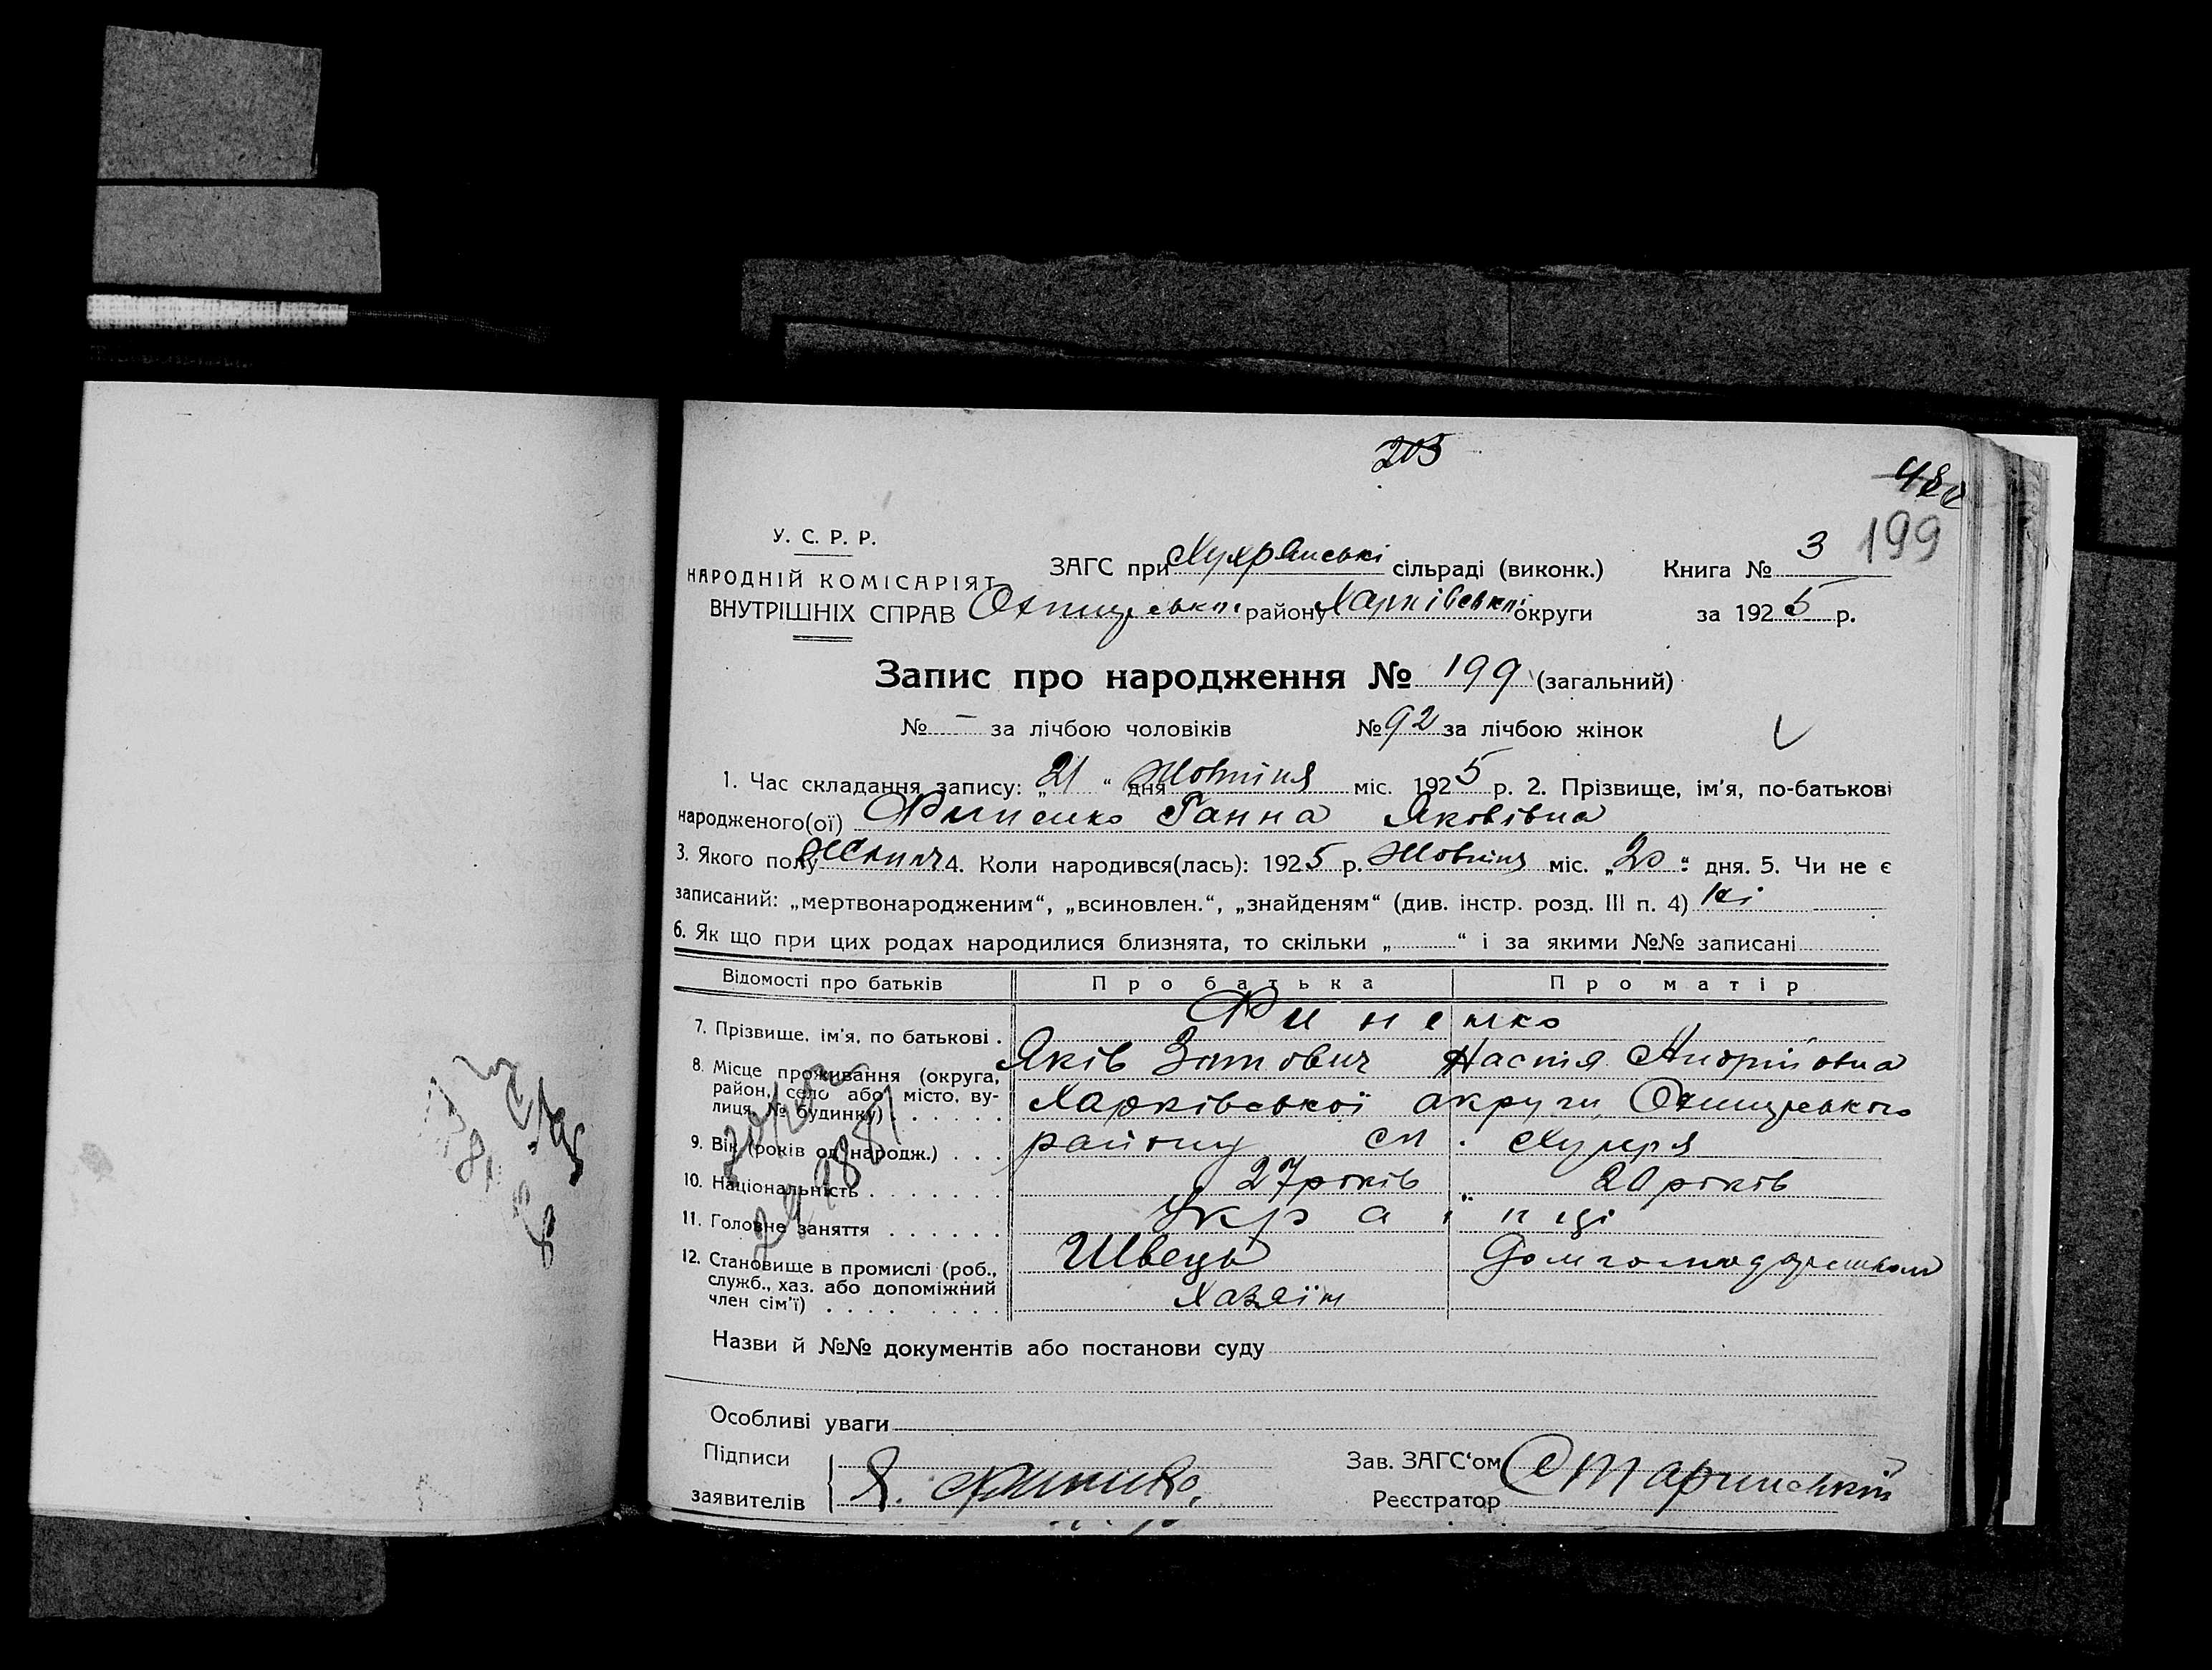 203
199
У. С. Р. Р.
НАРОДНІЙ КОМІСАРІЯТ
ВНУТРІШНІХ СПРАВ
ЗАГС при Хухрянські сільраді (виконк.) Книга № 3
Охтирського району Харківської округи за 1925 р.
Запис про народження № 199 (загальний)
№ – за лічбою чоловіків № 92 за лічбою жінок
1. Час складання запису: „21“ дня Жовтня міс. 1925 р. 2. Прізвище, ім'я, по-батькові
народженого(ої) Финенко Ганна Яковівна
3. Якого полу 4. Коли народився(лась): 1925 р. Жовтня міс. „20“ дня. 5. Чи не є
записаний: „мертвонародженим“, „всиновлен.“, „знайденям“ (див. інстр. розд. III п. 4) Ні
6. Як що при цих родах народилися близнята, то скільки „ “ і за якими №№ записані
Відомості про батьків Про батька Про матір
7. Прізвище, ім'я, по батькові . Финенко
Яків Зотович Настя Андріївна
8. Місце проживання (округа, район, село або місто, вулиця, № будинку) . . . . . Харківської округи, Охтирського
району Хухря
9. Вік (років од народж.) . . . 27 років 20 років
10. Національність . . . . . . . Українці
11. Головне заняття . . . . . . Швець
12. Становище в промислі (роб., служб., хаз. або допоміжний член сім'ї) . . . . . . . Хазяїн
Назви й №№ документів або постанови суду
Особливі уваги
Підписи
заявителів Я. Финенко
Зав. ЗАГС'ом
Реєстратор